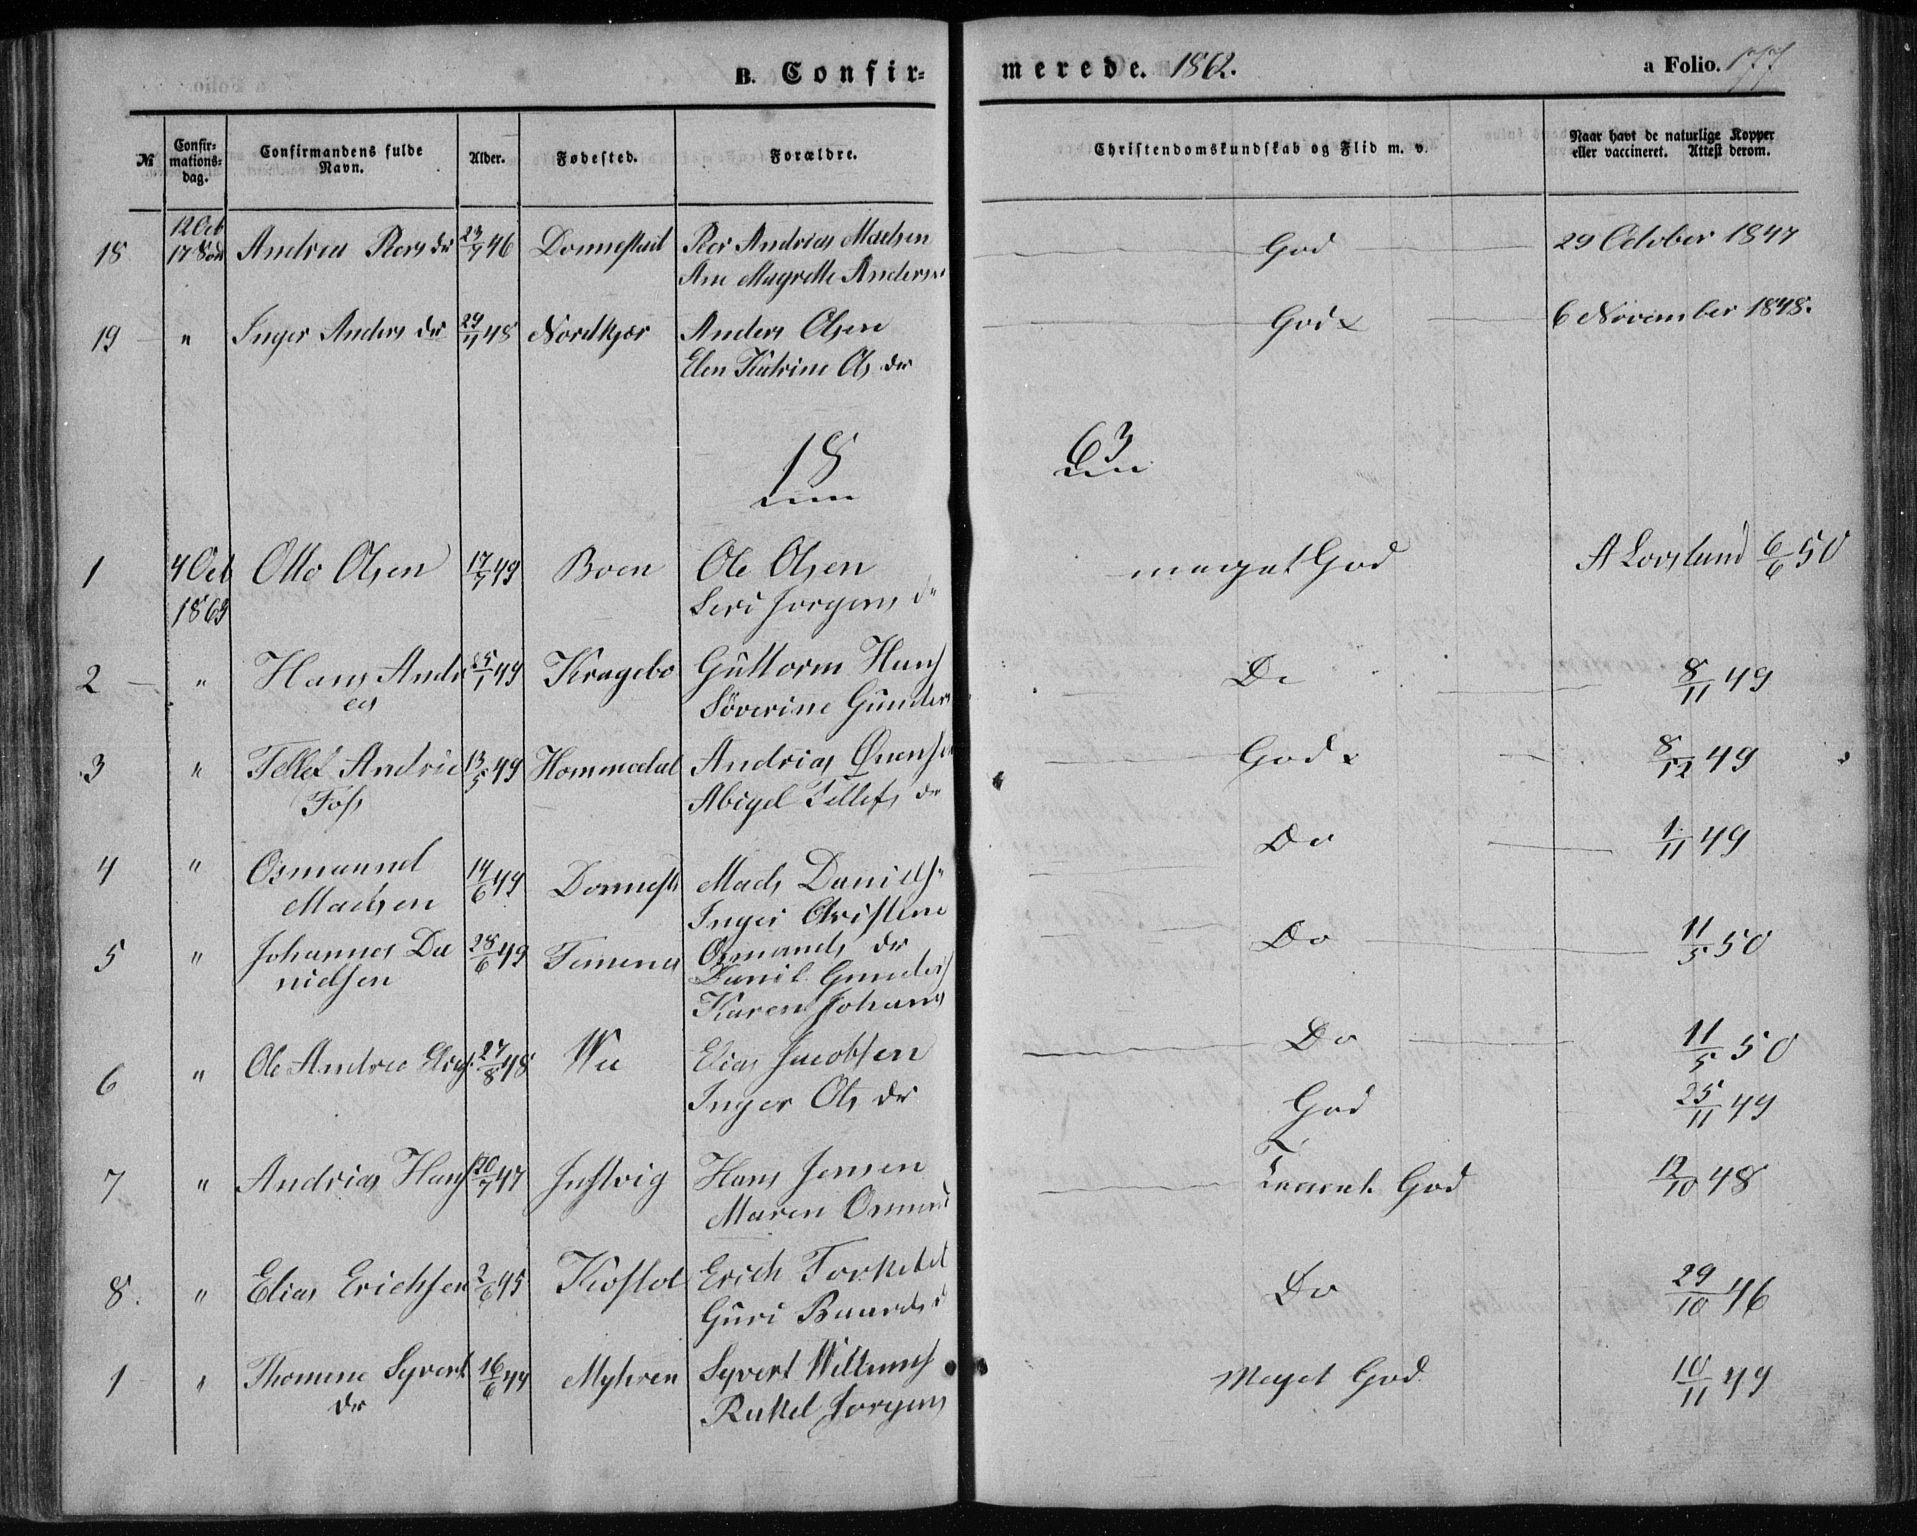 B. Confir-
merede. 1862.
a Folio. 177
№
Confir-
mations-
dag.
Confirmandens fulde
Navn.
Alder.
Fødested.
Forældre.
Christendomskundskab og Flid m. v.
Naar havt de naturlige Kopper
eller vaccineret. Attest derom.
18 12 Oct Andrea Pers dr 23/7 46 Donnestad Per Andreas Madsen God 29 October 1847
17 Sønd
Ane Magrethe Anders
19 " Inger Anders dr 29/7 48 Nordkjær Anders Olsen God 6 November 1848.
Elen Katrine Ols dr
18
63
1 4 Oct Otto Olsen 17/7 49 Boen Ole Olsen meget God A Lovsland 6/6 50
1863 Seri Jorgens d
2 " Hans Andr 25/1 49 Kragebo Guttorm Hans Do 8/11 49
eas Søverine Gunders
3 " Tellef Andrie 13/5 49 Hommedal Andreas Ovensen God 8/12 49
Foss Abigel Tellefs dr
4 " Osmannd 14/6 49 Donnest Mads Daniels Do 1/11 49
Madsen Inger Christine
Osmands dr
5 " Johannes Da 28/6 49 Temena Daniel Gunders Do 11/5 50
nielsen Karen Johans
6 " Ole Andrea Elias 27/8 48 Wee Elias Jacobsen Do 11/5 50
Inger Ols dr God 25/11 49
7 " Andreas Hans 20/7 47 Justvig Hans Jensen God 12/10 48
Maren Osmund
8. " Elias Erichsen 2/6 45 Kostol Erich Torkelst Do 29/10 46
Guri Baards d
1 " Thomine Syvert 16/6 49 Myhren Syvert Willums Meget God 10/11 49
dr Rakel Jorgens